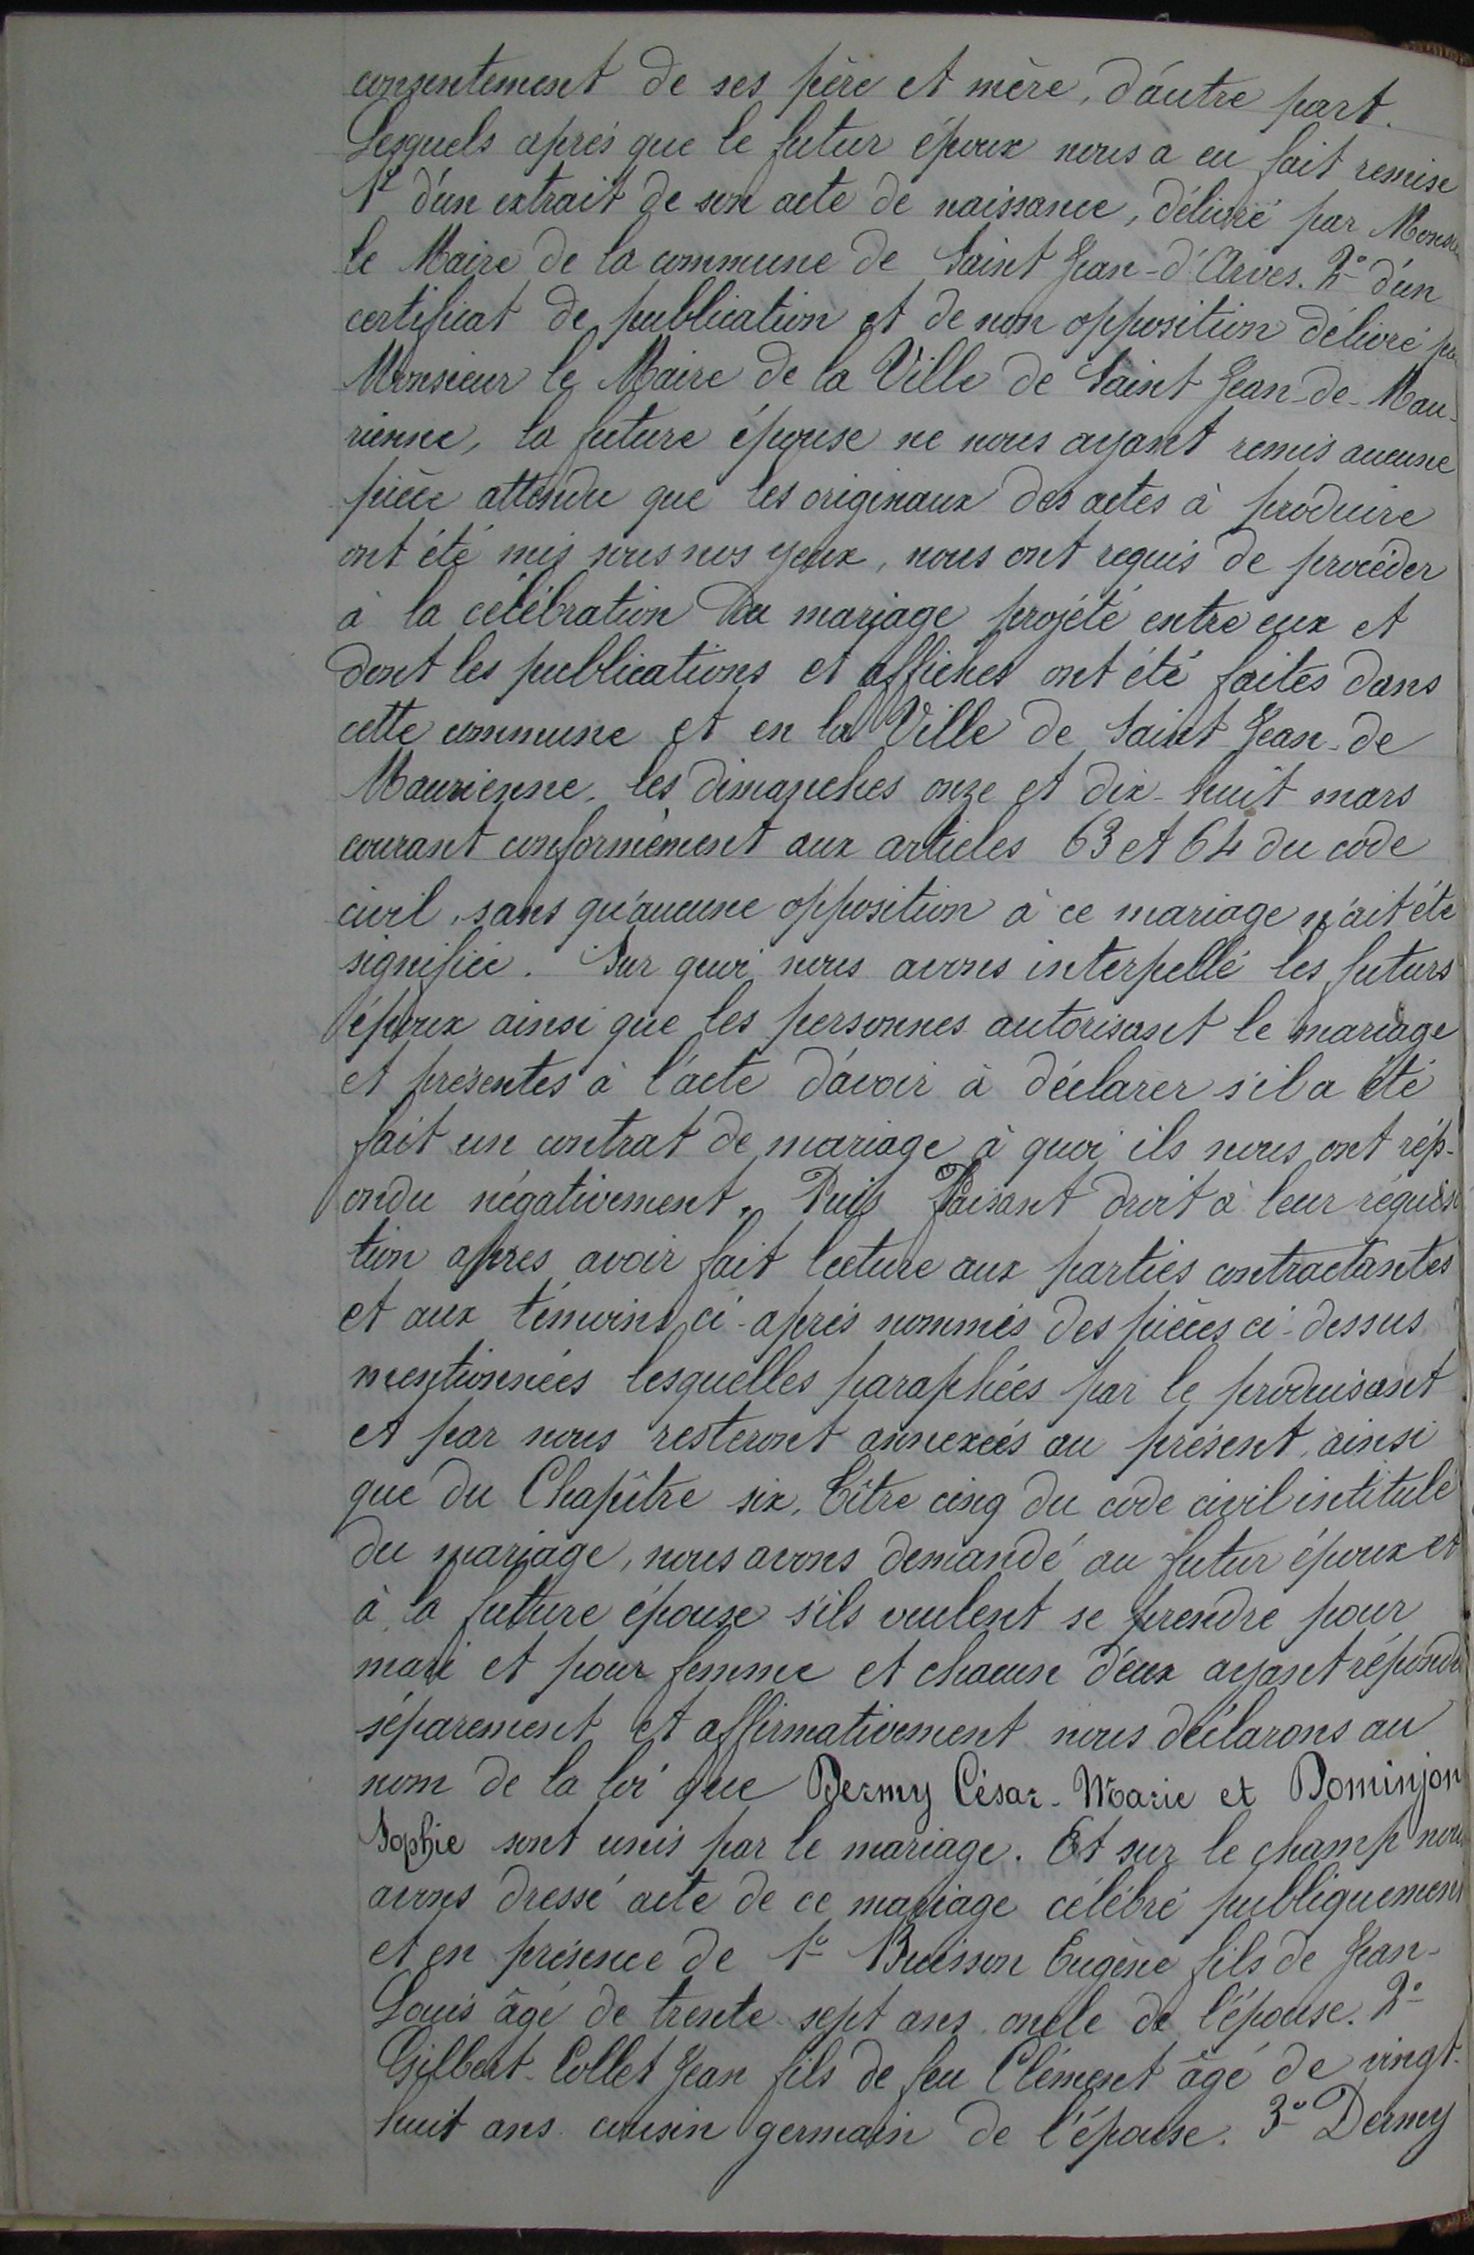 consentement de ses père et mère, d'autre part.
Lesquels après que le futur époux nous a eu fait remise
1º d'un extrait de son acte de naissance, délivré par Monsieu
le Maire de la commune de Saint Jean-d'Arves. 2º d'un
certificat de publication et de non opposition délivré par
Monsieur le Maire de la Ville de Saint Jean-de-Mau-
rienne, la future épouse ne nous ayant remis aucune
pièce attendu que les originaux des actes à produire
ont été mis sous nos yeux, nous ont requis de procéder
à la célébration du mariage projété entre eux et
dont les publications et affiches ont été faites dans
cette commune et en la Ville de Saint Jean-de
Maurienne, les dimanches onze et dix-huit mars
courant conformément aux articles 63 et 64 du code
civil, sans qu'aucune opposition à ce mariage n'ait été
signifiée. Sur quoi nous avons interpellé les futurs
époux ainsi que les personnes autorisant le mariage
et présentes à l'acte d'avoir à déclarer s'il a été
fait un contrat de mariage à quoi ils nous ont rép-
ondu négativement. Puis Faisant droit à leur réquisi
tion après avoir fait lecture aux parties contractantes
et aux témoins ci-après nommés des pièces ci-dessus
mentionnées lesquelles paraphées par le produisant
et par nous resteront annexées au présent, ainsi
que du Chapître six, Titre cinq du code civil intitulé
du mariage, nous avons demandé au futur époux et
à la future épouse s'ils veulent se prendre pour
mari et pour femme et chacun d'eux ayant répondu
séparement et affirmativement nous déclarons au
nom de la loi que Dermy César-Marie et Dominjon
Sophie sont unis par le mariage. Et sur le champ nous
avons dressé acte de ce mariage célébré publiquement
et en présence de 1º Buisson Eugène fils de Jean-
Louis âgé de trente-sept ans oncle de l'épouse. 2º
Gilbert-Collet Jean fils de feu Clément âgé de vingt-
huit ans cousin germain de l'épouse. 3º Dermy